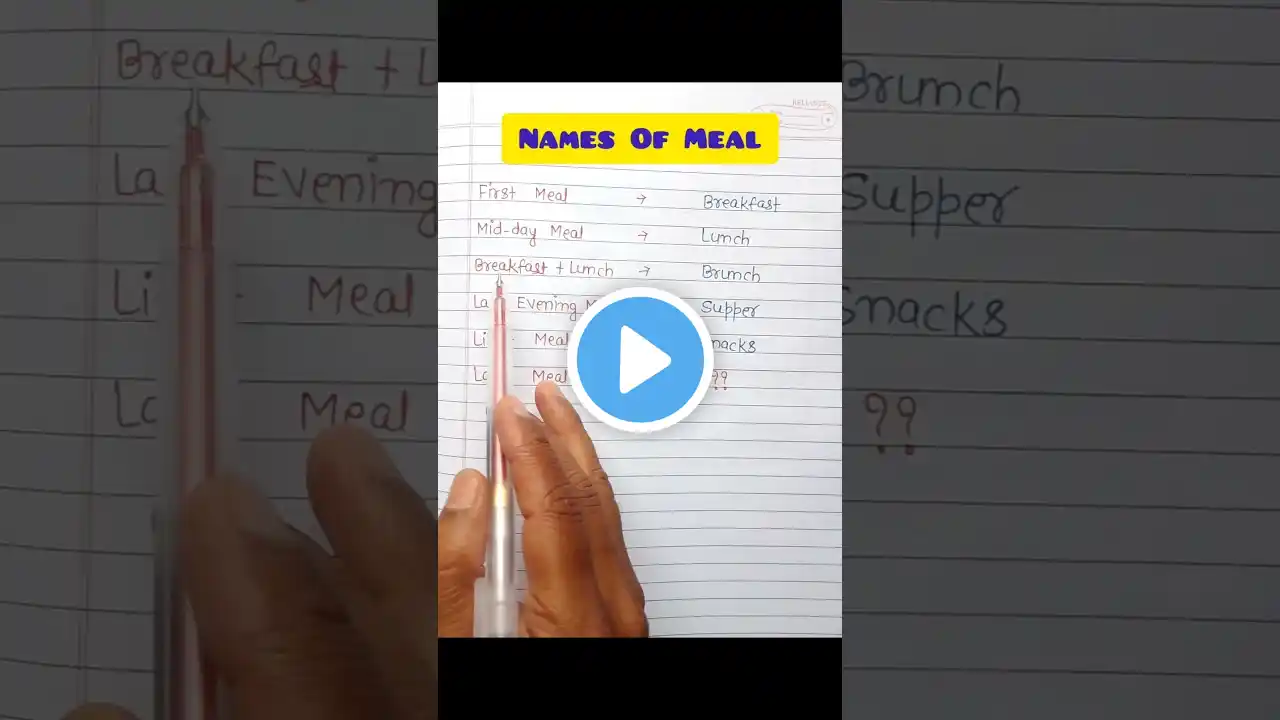 NAMES OF MEAL
First Meal → Breakfast
Mid-day Meal → Lunch
Breakfast + Lunch → Brunch
Evening Supper
Meal Snacks
Meal ??